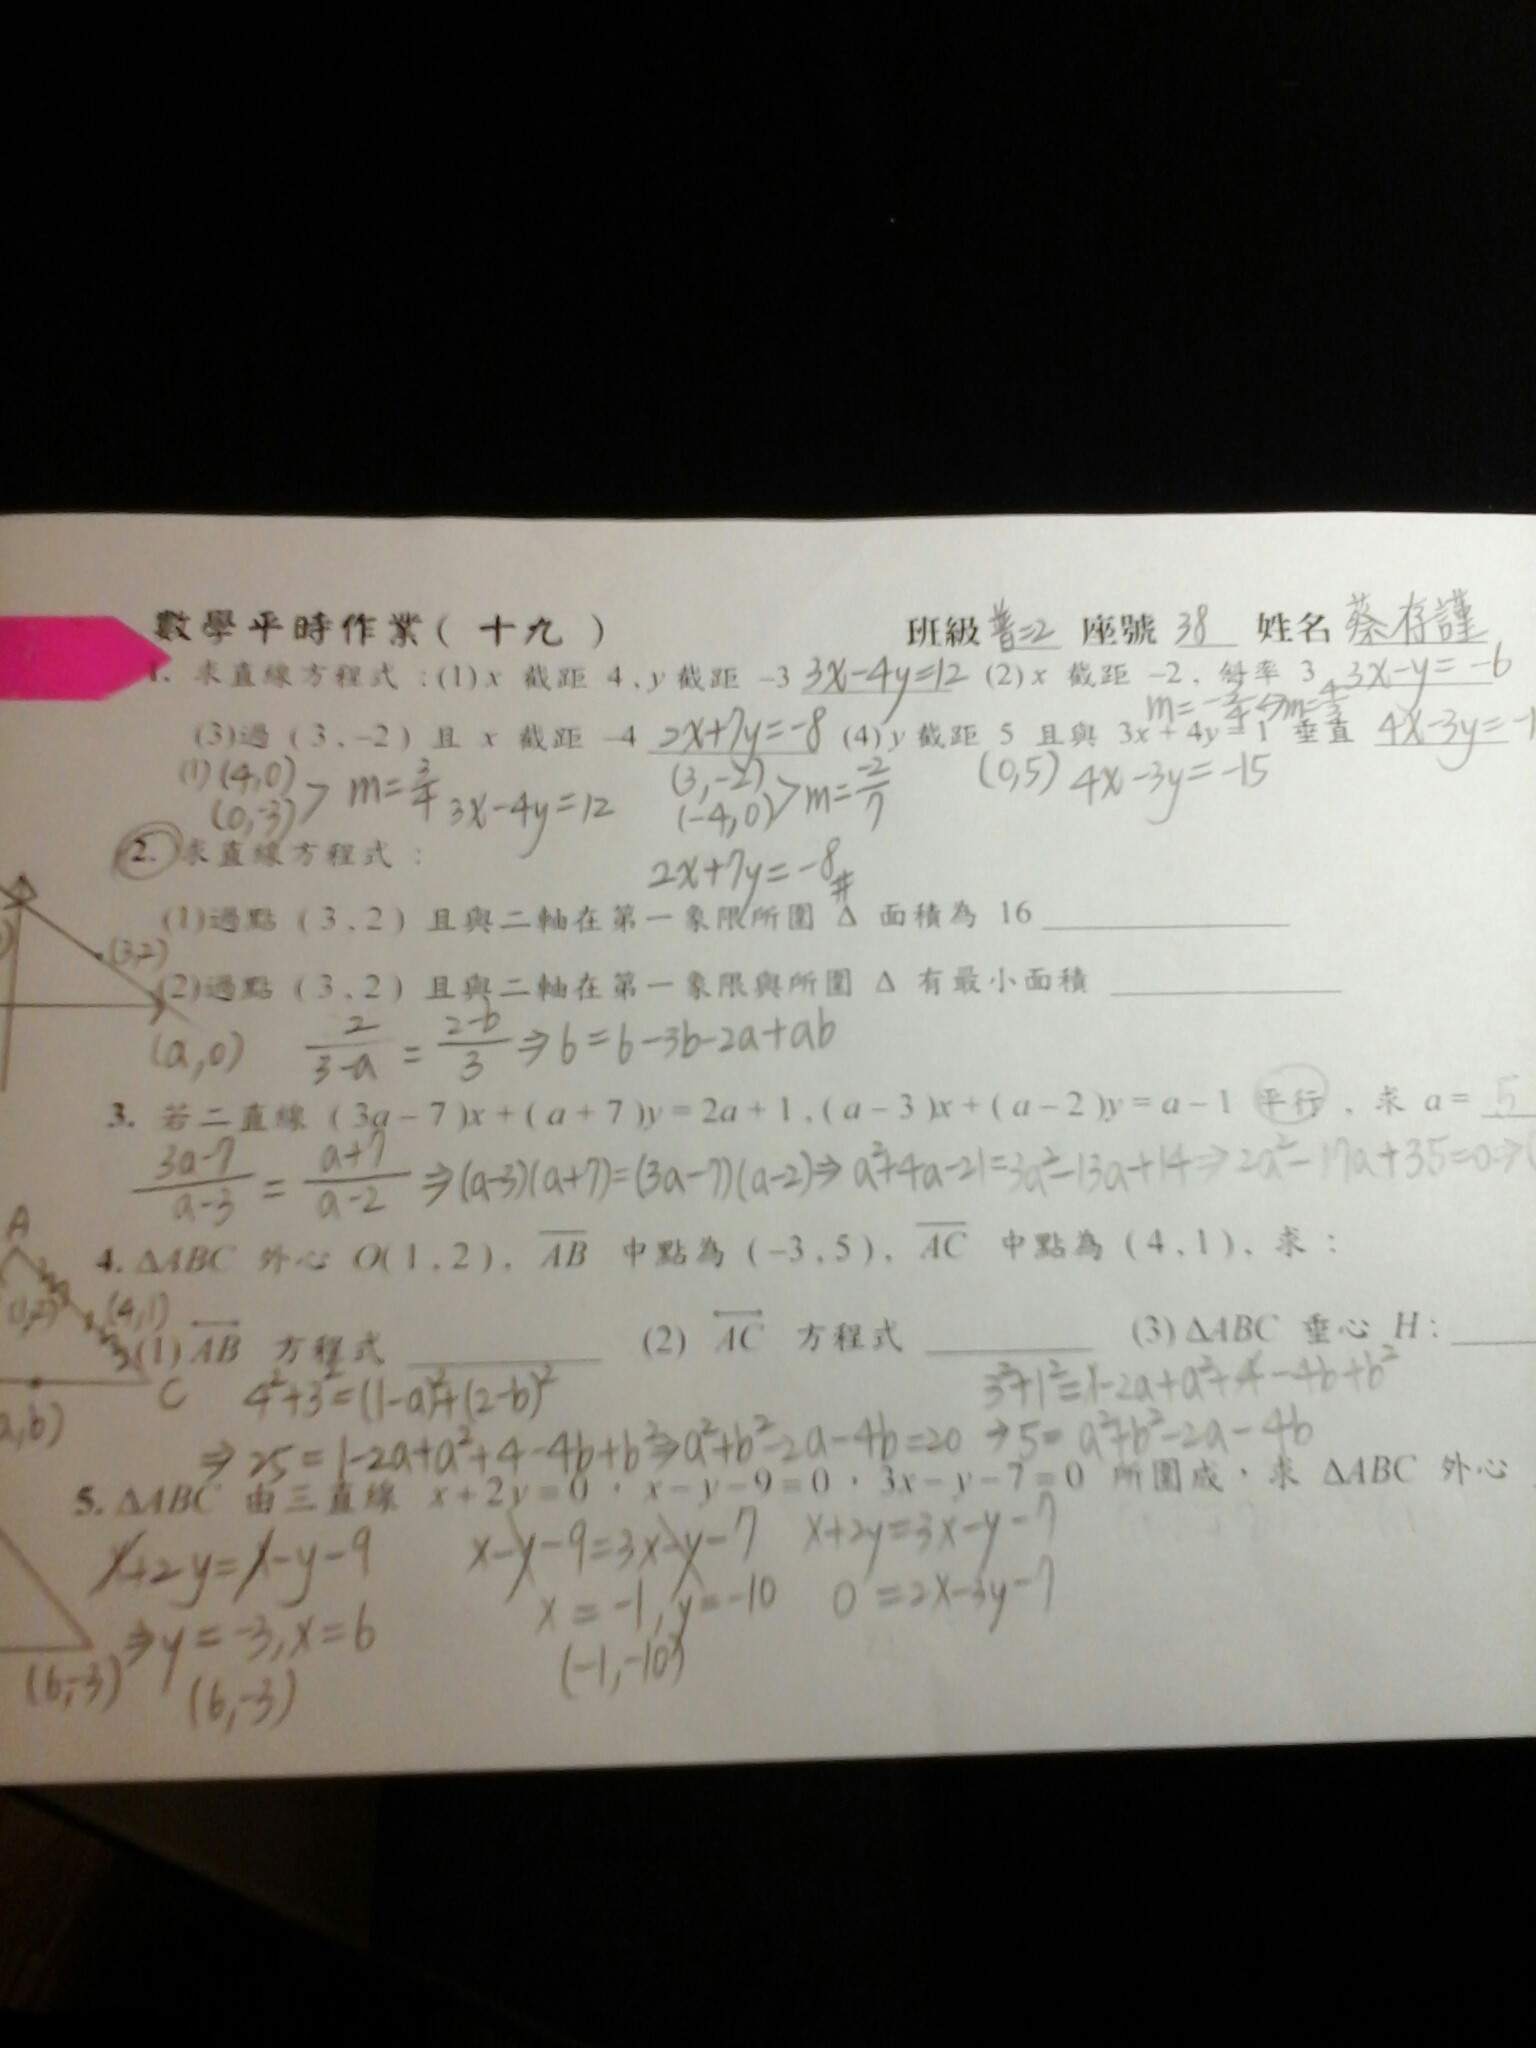 數學平時作業( 十九 ) 班級 普二2 座號 38 姓名 蔡存謹
1. 求直線方程式:(1) x 截距 4, y 截距 -3 3x-4y=12 (2) x 截距 -2, 斜率 3 3x-y=-6
m=-3/4⇒m=4/3
(3)過 (3,-2) 且 x 截距 -4 2x+7y=-8 (4) y 截距 5 且與 3x+4y=1 垂直 4x-3y=-1
(1) (4,0) (0,-3) > m=3/4 3x-4y=12 (3,-2) (-4,0) > m=-2/7 (0,5) 4x-3y=-15
2x+7y=-8#
2. 求直線方程式:
(1)過點 (3,2) 且與二軸在第一象限所圍 Δ 面積為 16
(3,2)
(2)過點 (3,2) 且與二軸在第一象限與所圍 Δ 有最小面積
(a,0) 2/(3-a) = (2-b)/3 ⇒ 6=6-3b-2a+ab
3. 若二直線 (3a-7)x+(a+7)y=2a+1, (a-3)x+(a-2)y=a-1 平行, 求 a= 5
(3a-7)/(a-3) = (a+7)/(a-2) ⇒(a-3)(a+7)=(3a-7)(a-2)⇒ a²+4a-21=3a²-13a+14⇒2a²-17a+35=0⇒(
A
4. ΔABC 外心 O(1,2), AB 中點為 (-3,5), AC 中點為 (4,1), 求:
(1,2) (4,1)
(1) AB 方程式 (2) AC 方程式 (3) ΔABC 垂心 H:
C 4²+3²=(1-a)²+(2-b)² 3²+1²=1-2a+a²+4-4b+b²
a,b) ⇒ 25=1-2a+a²+4-4b+b²⇒a²+b²-2a-4b=20 ⇒5= a²+b²-2a-4b
5. ΔABC 由三直線 x+2y=0, x-y-9=0, 3x-y-7=0 所圍成, 求 ΔABC 外心
x+2y=x-y-9 x-y-9=3x-y-7 x+2y=3x-y-7
⇒y=-3, x=6 x=-1, y=-10 0=2x-3y-7
(6,-3) (6,-3) (-1,-10)